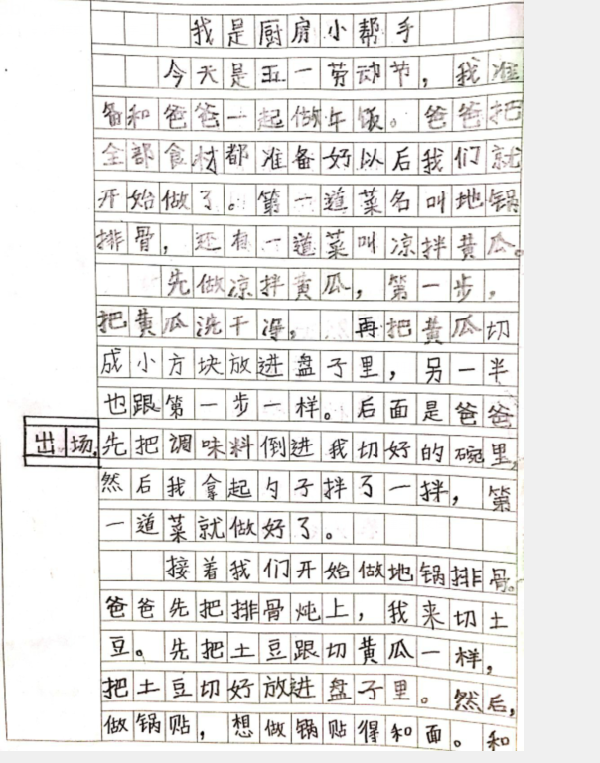 我是厨房小帮手
今天是五一劳动节，我准
备和爸爸一起做午饭。爸爸把
全部食材都准备好以后我们就
开始做了。第一道菜名叫地锅
排骨，还有一道菜叫凉拌黄瓜。
先做凉拌黄瓜，第一步，
把黄瓜洗干净，再把黄瓜切
成小方块放进盘子里，另一半
也跟第一步一样。后面是爸爸
出场，先把调味料倒进我切好的碗里，
然后我拿起勺子拌了一拌，第
一道菜就做好了。
接着我们开始做地锅排骨。
爸爸先把排骨炖上，我来切土
豆。先把土豆跟切黄瓜一样，
把土豆切好放进盘子里。然后，
做锅贴，想做锅贴得和面。和